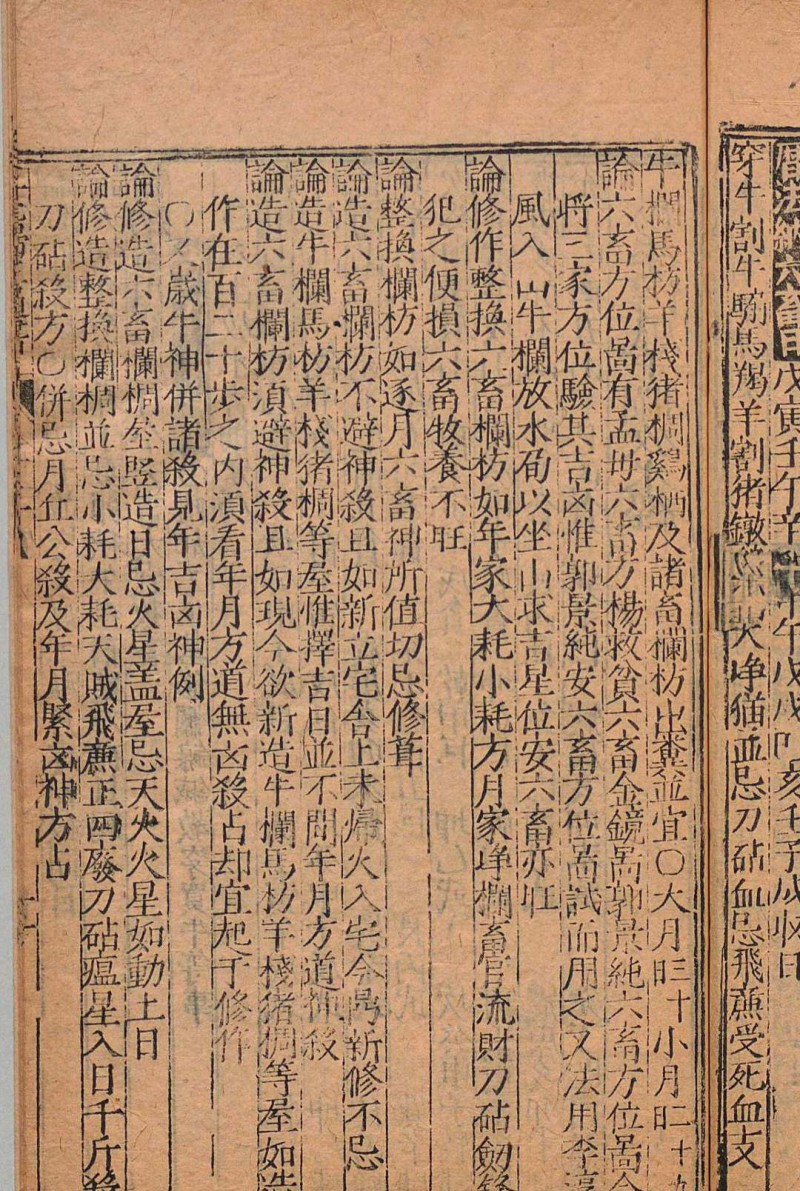 戊寅壬午辛 午戊戌 亥壬子成收日
穿牛割牛騸馬羯羊割猪鐓 犬净猫並忌刀砧血忌飛廉受死血支
牛欄馬枋羊棧猪椆鷄栖及諸畜欄枋出糞並宜○大月曰三十小月曰二十九
論六畜方位啚有孟母六畜方楊救貧六畜金鏡啚郭景純六畜方位啚今
將三家方位驗其吉凶惟郭景純安六畜方位啚試而用之又法用李淳
風入山牛欄放水旬以坐山求吉星位安六畜亦旺
論修作整換六畜欄枋如年家大耗小耗方月家净欄畜官流財刀砧劒鋒
犯之便損六畜牧養不旺
論整換欄枋如逐月六畜神所值切忌修葺
論造六畜欄枋不避神殺且如新立宅舍上未歸火入宅今爲新修不忌
論造牛欄馬枋羊棧猪椆等屋惟擇吉日並不問年月方道神殺
論造六畜欄枋須避神殺且如現今欲新造牛欄馬枋羊棧猪椆等屋如造
作在百二十步之內須看年月方道無凶殺占却宜起于修作
○又歲牛神併諸殺見年吉凶神例
論修造六畜欄椆垒竪造日忌火星盖屋忌天火火星如動土日
論修造整換欄椆並忌小耗大耗天賊飛廉正四廢刀砧瘟星入日千斤殺
刀砧殺方○併忌月丘公殺及年月緊凶神方占